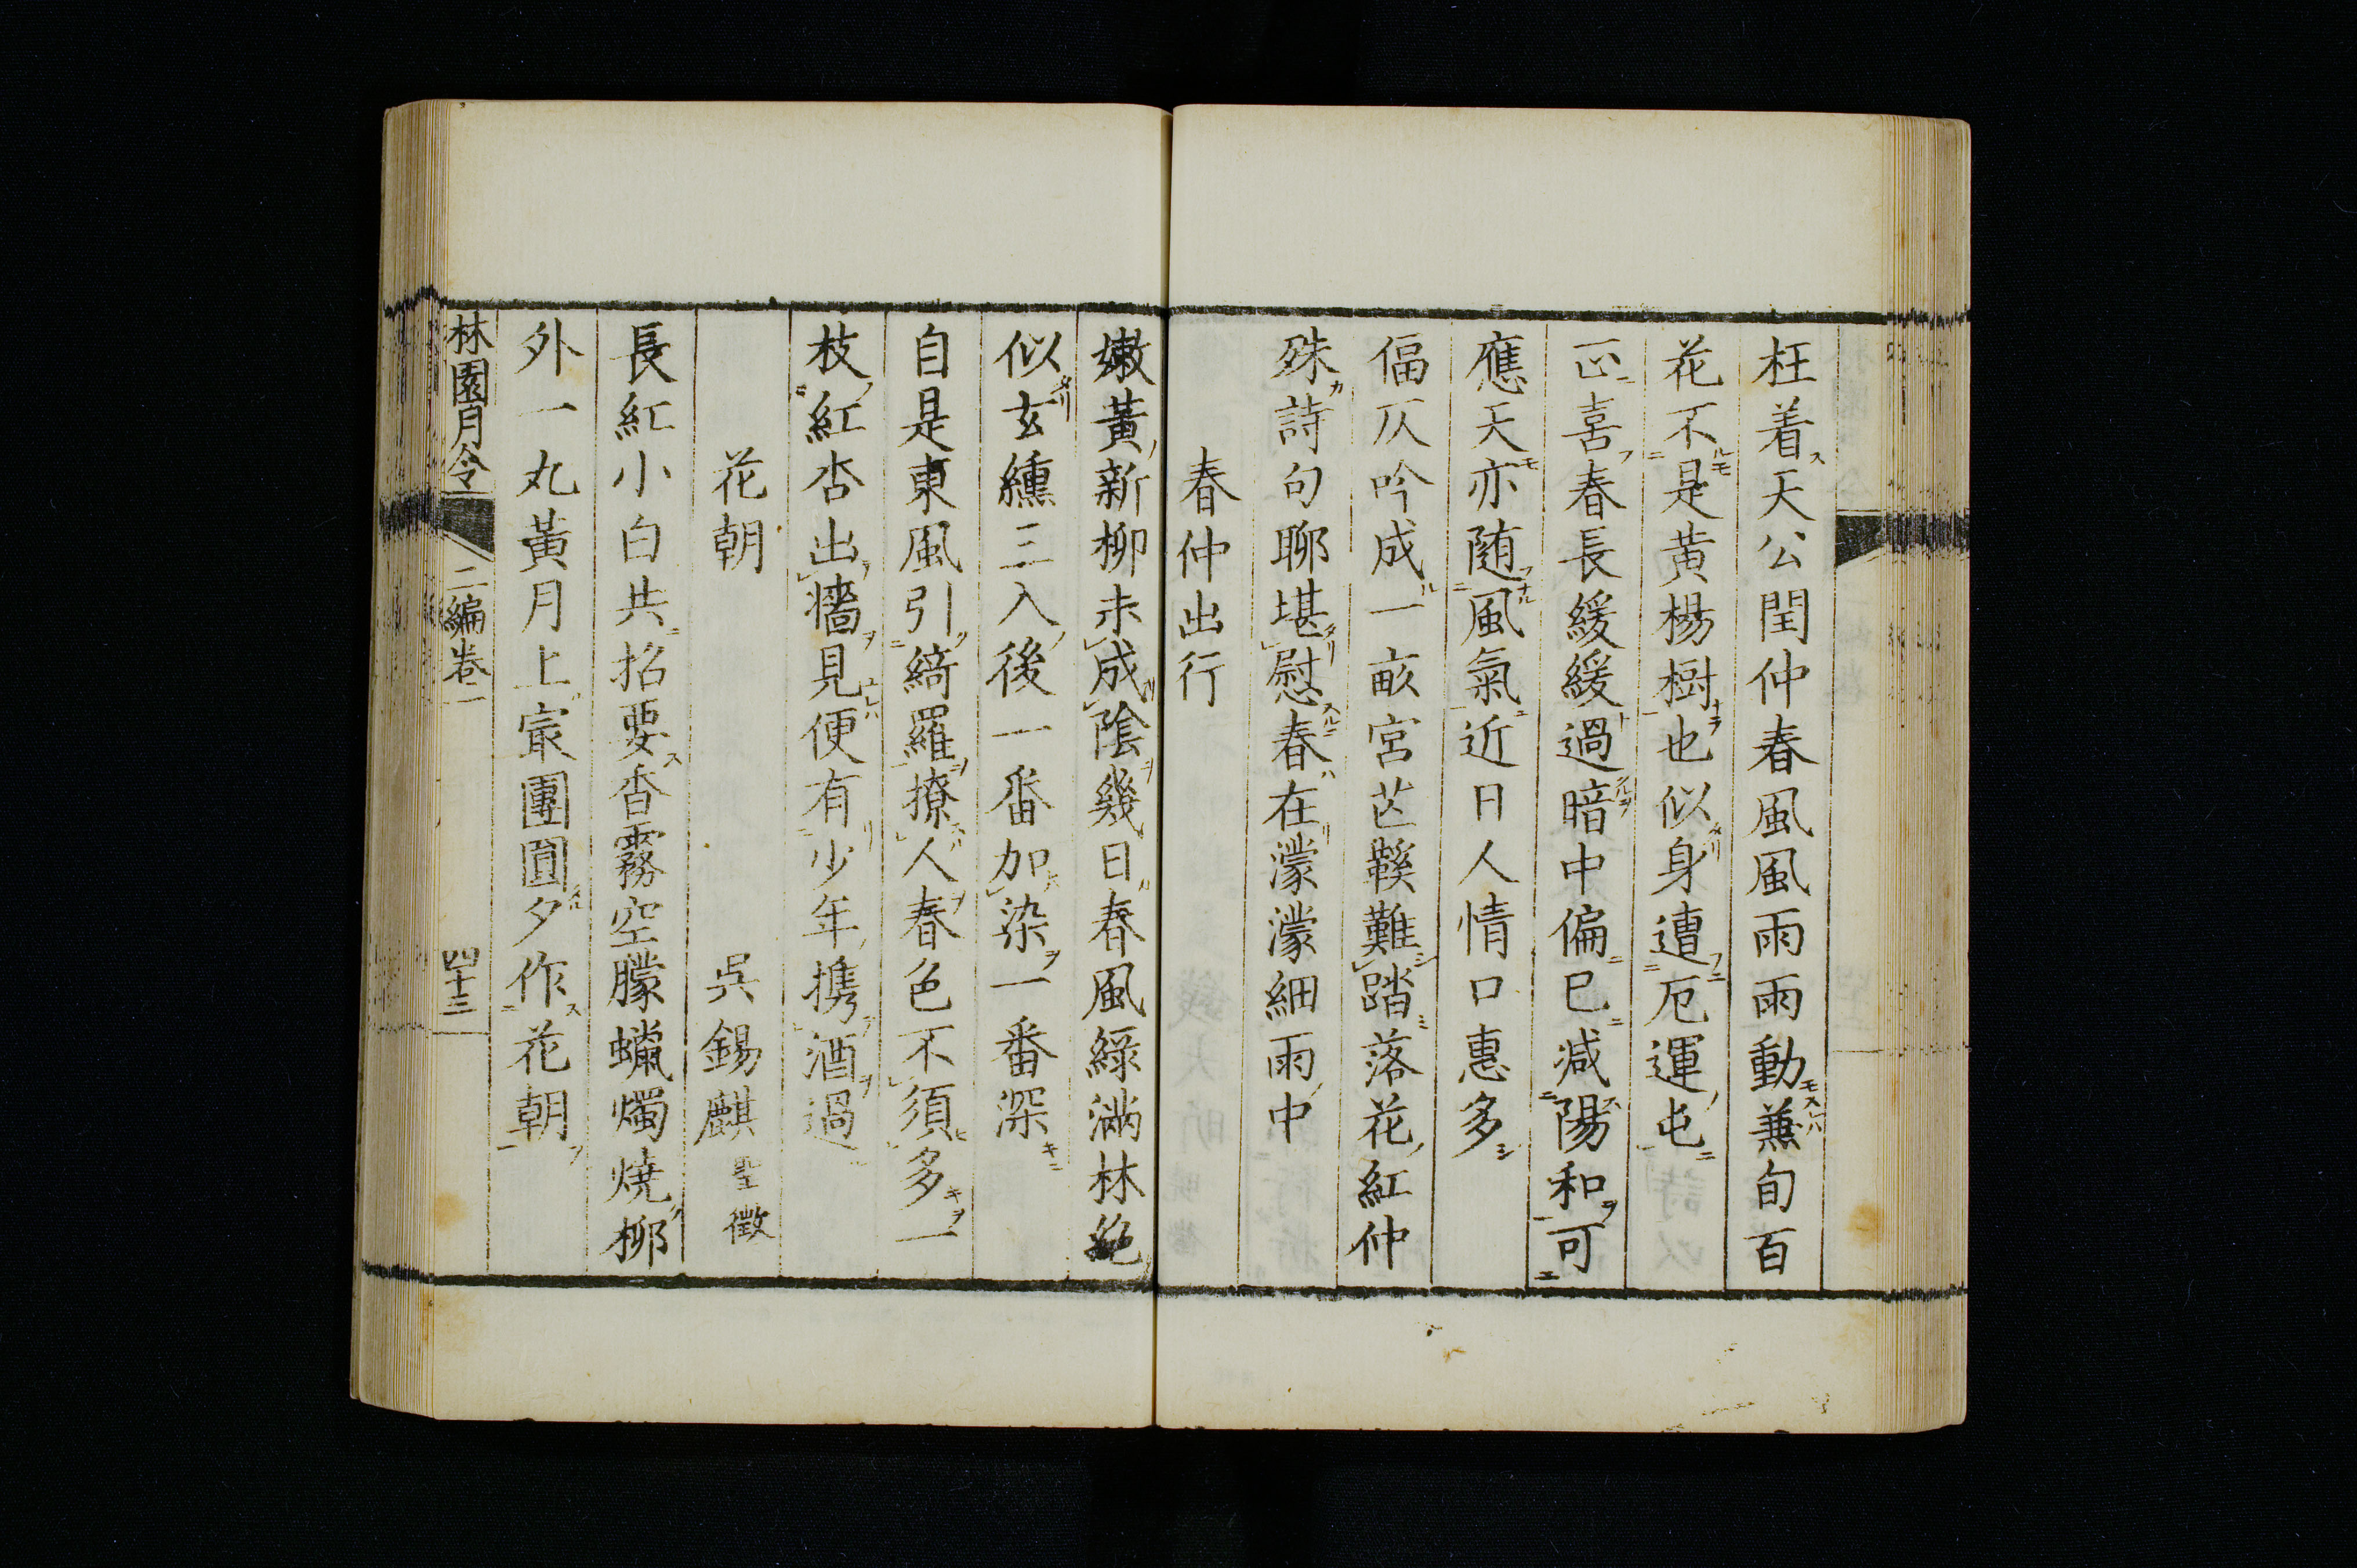 枉着天公閏仲春風風雨雨動兼旬百
花不是黄楊樹也似身遭厄運屯
正喜春長緩緩過暗中偏已減陽和可
應天亦随風氣近日人情口惠多
偪仄吟成一畝宮芒鞵難踏落花紅仲
殊詩句聊堪慰春在濛濛細雨中
春仲出行
嫩黃新柳未成陰幾日春風綠滿林絶
似玄纁三入後一番加染一番深
自是東風引綺羅撩人春色不須多一
枝紅杏出墻見便有少年携酒過
花朝 吳錫麒聖徵
長紅小白共招要香霧空朦蠟燭燒柳
外一丸黃月上寂團圓夕作花朝
林園月令 二編卷一 四十三